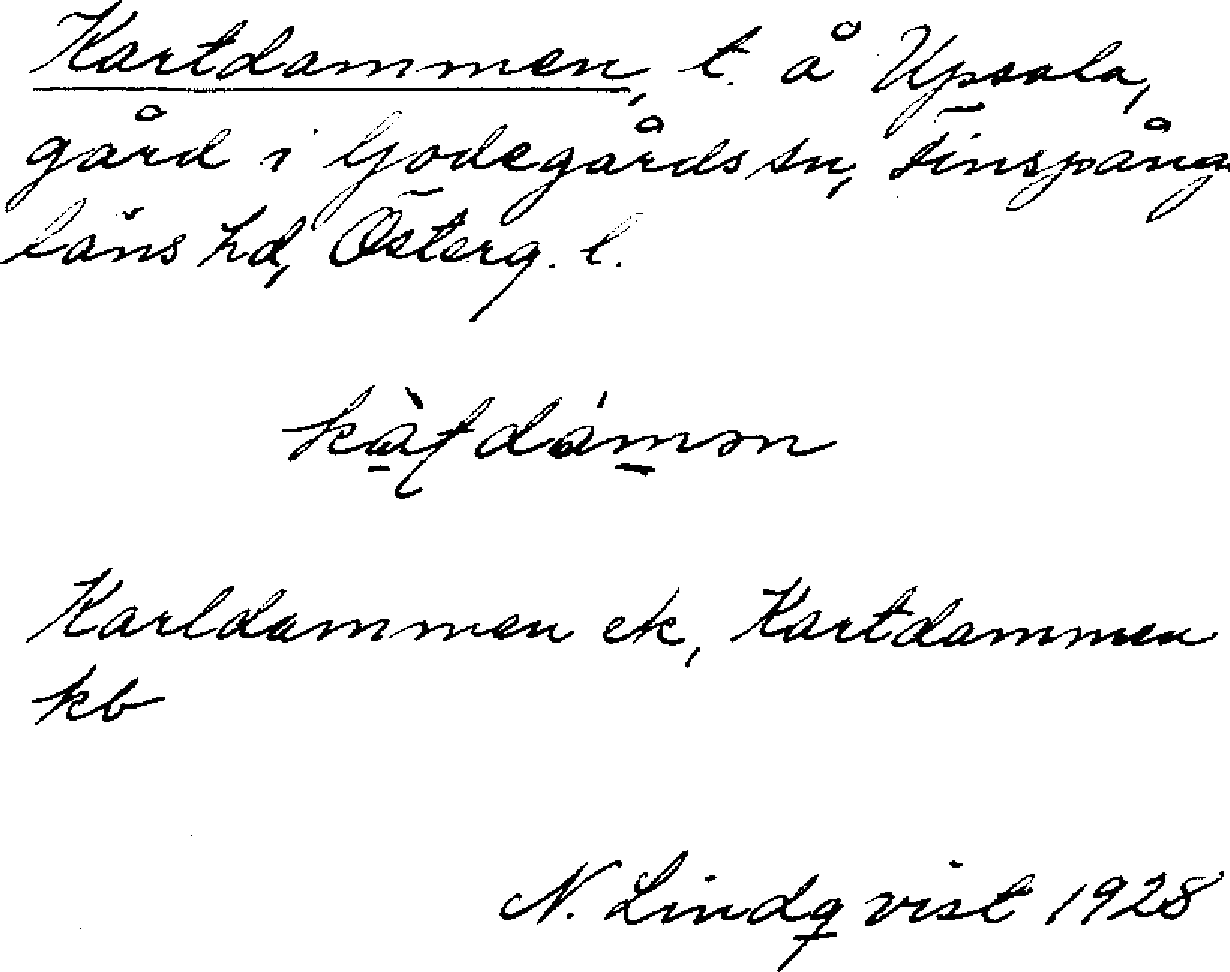 Kartdammen, t. å Upsala,
gård i Godegårds sn, Finspånga
läns hd, Österg. l.
Karldammen ek, Kartdammen
kb
N. Lindqvist 1928